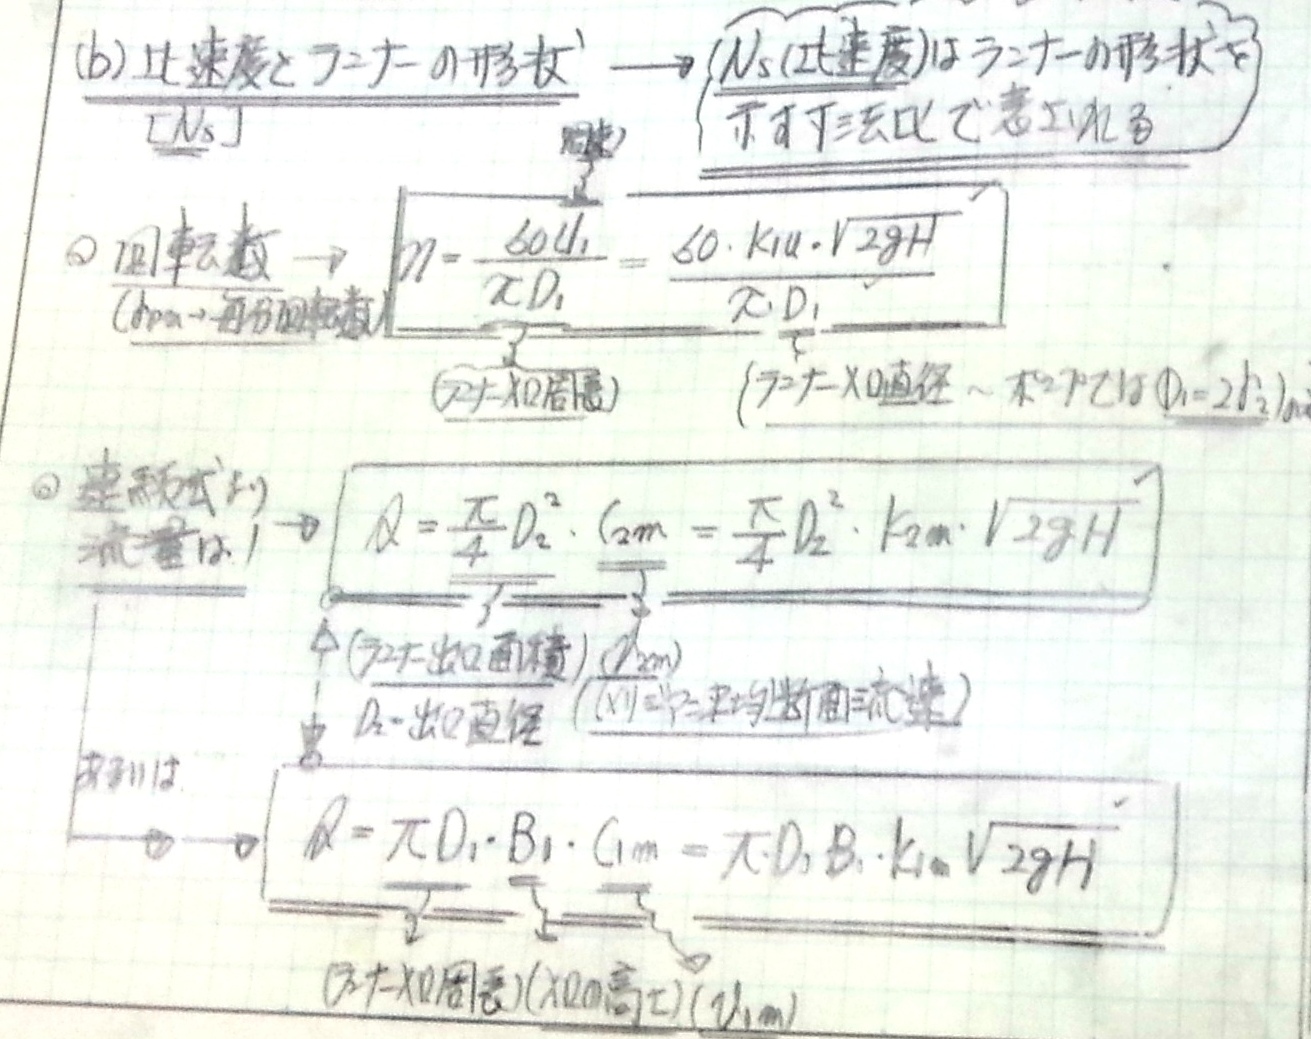 (b) 比速度とランナーの形状 → (Ns(比速度)はランナーの形状を
[Ns] 示す寸法比で表される
(周速)
◎ 回転数 → n = 60U₁/πD₁ = 60·K₁u·√2gH/π·D₁
(rpm→毎分回転数)
(ランナー入口周長) (ランナー入口直径 ~ ポンプでは(D₁=2r₂)
◎ 連続式より
流量は、 → Q = π/4 D₂²·C₂m = π/4 D₂²·K₂m·√2gH
(ランナー出口面積) (V₂m)
D₂-出口直径 断面流速)
あるいは
Q = πD₁·B₁·C₁m = π·D₁B₁·K₁m√2gH
(ランナー入口周長)(入口の高さ)(V₁m)